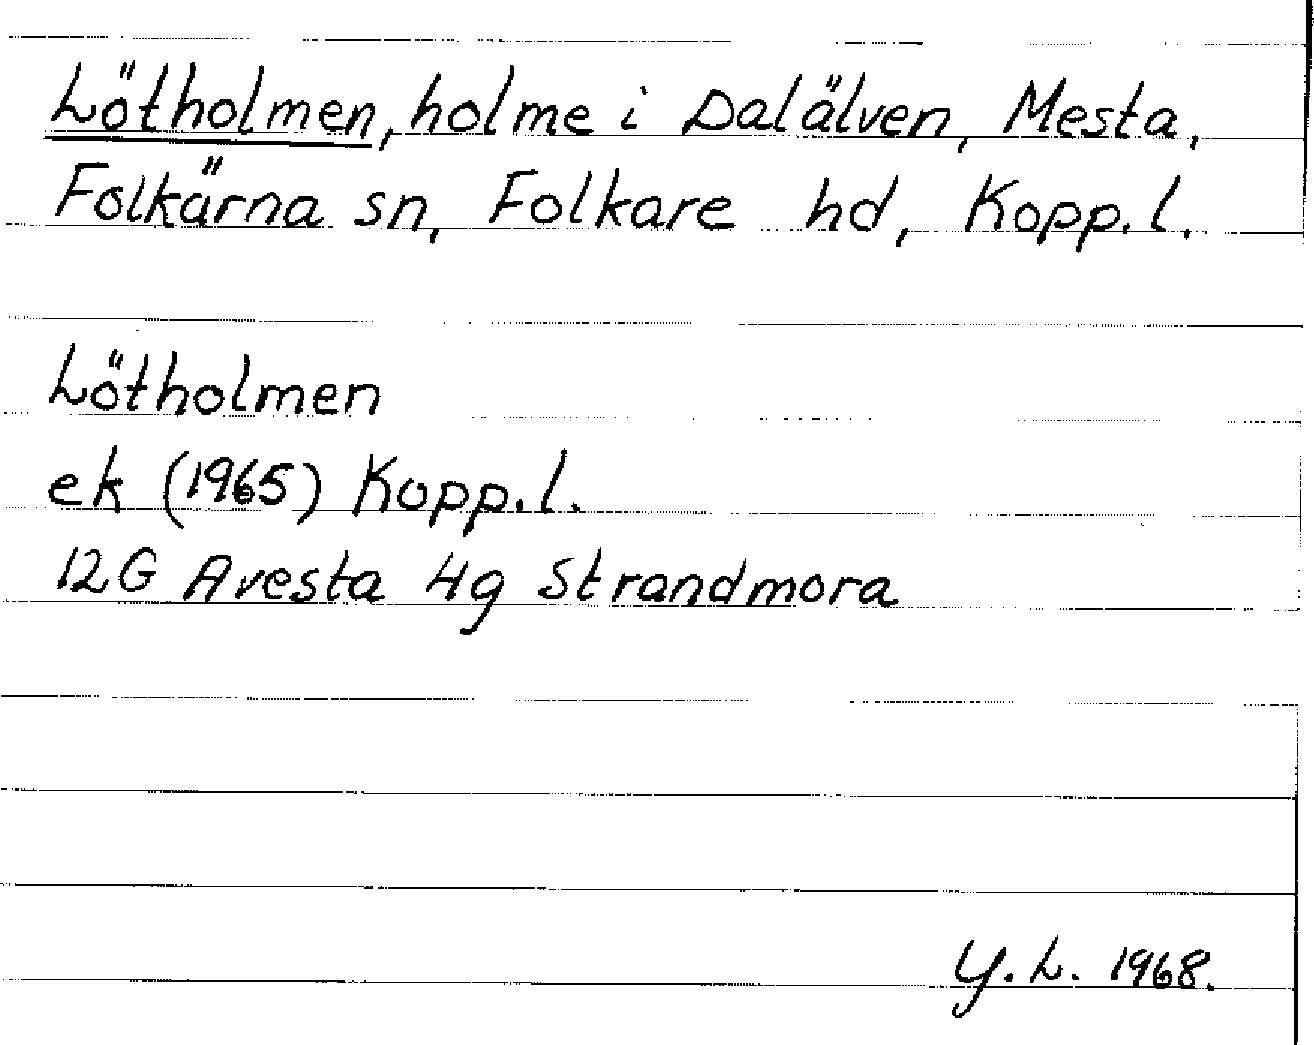 Lötholmen, holme i Dalälven, Mesta,
Folkärna sn, Folkare hd, Kopp.l.
Lötholmen
ek (1965) Kopp.l.
12G Avesta 4g Strandmora
Y.L. 1968.